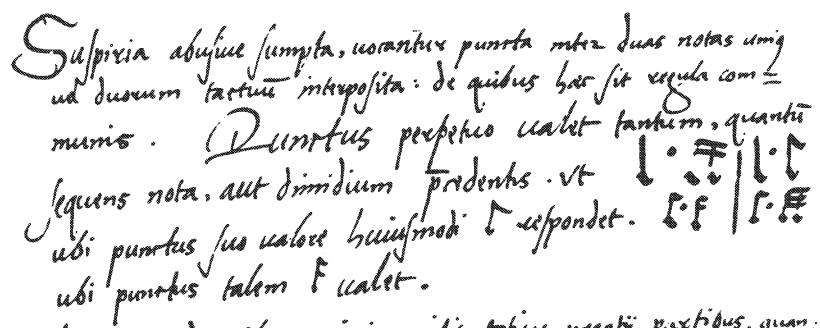 Suspiria abusiue sumpta, uocantur puncta inter duas notas unius
uel duorum tactuū interposita: de quibus hæc sit regula com=
munis. Punctus perpetuo ualet tantum, quantū
sequens nota, aut dimidium p̄cedentis. Vt
ubi punctus suo ualore huiusmodi respondet.
ubi punctus talem ualet.